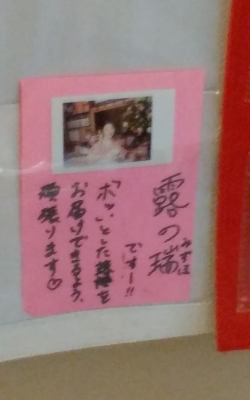 露の瑞
みずほ
です!!
「ポッ」とした
お届けできるよう、
頑張ります♡